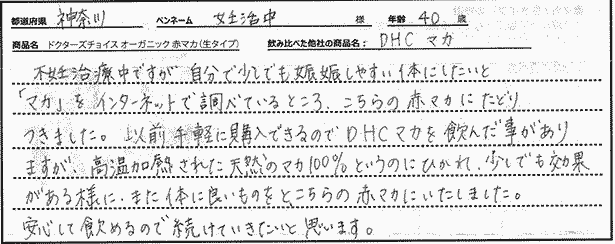 都道府県 神奈川 ペンネーム 妊活中 様 年齢 40 歳
商品名 ドクターズチョイス オーガニック 赤マカ(生タイプ) 飲み比べた他社の商品名: DHC マカ
不妊治療中ですが、自分で少しでも妊娠しやすい体にしたいと
「マカ」をインターネットで調べているところ、こちらの赤マカにたどり
つきました。以前手軽に購入できるのでDHCマカを飲んだ事があり
ますが、高温加熱された天然のマカ100%というのにひかれ、少しでも効果
がある様に、また体に良いものをと、こちらの赤マカにいたしました。
安心して飲めるので続けていきたいと思います。